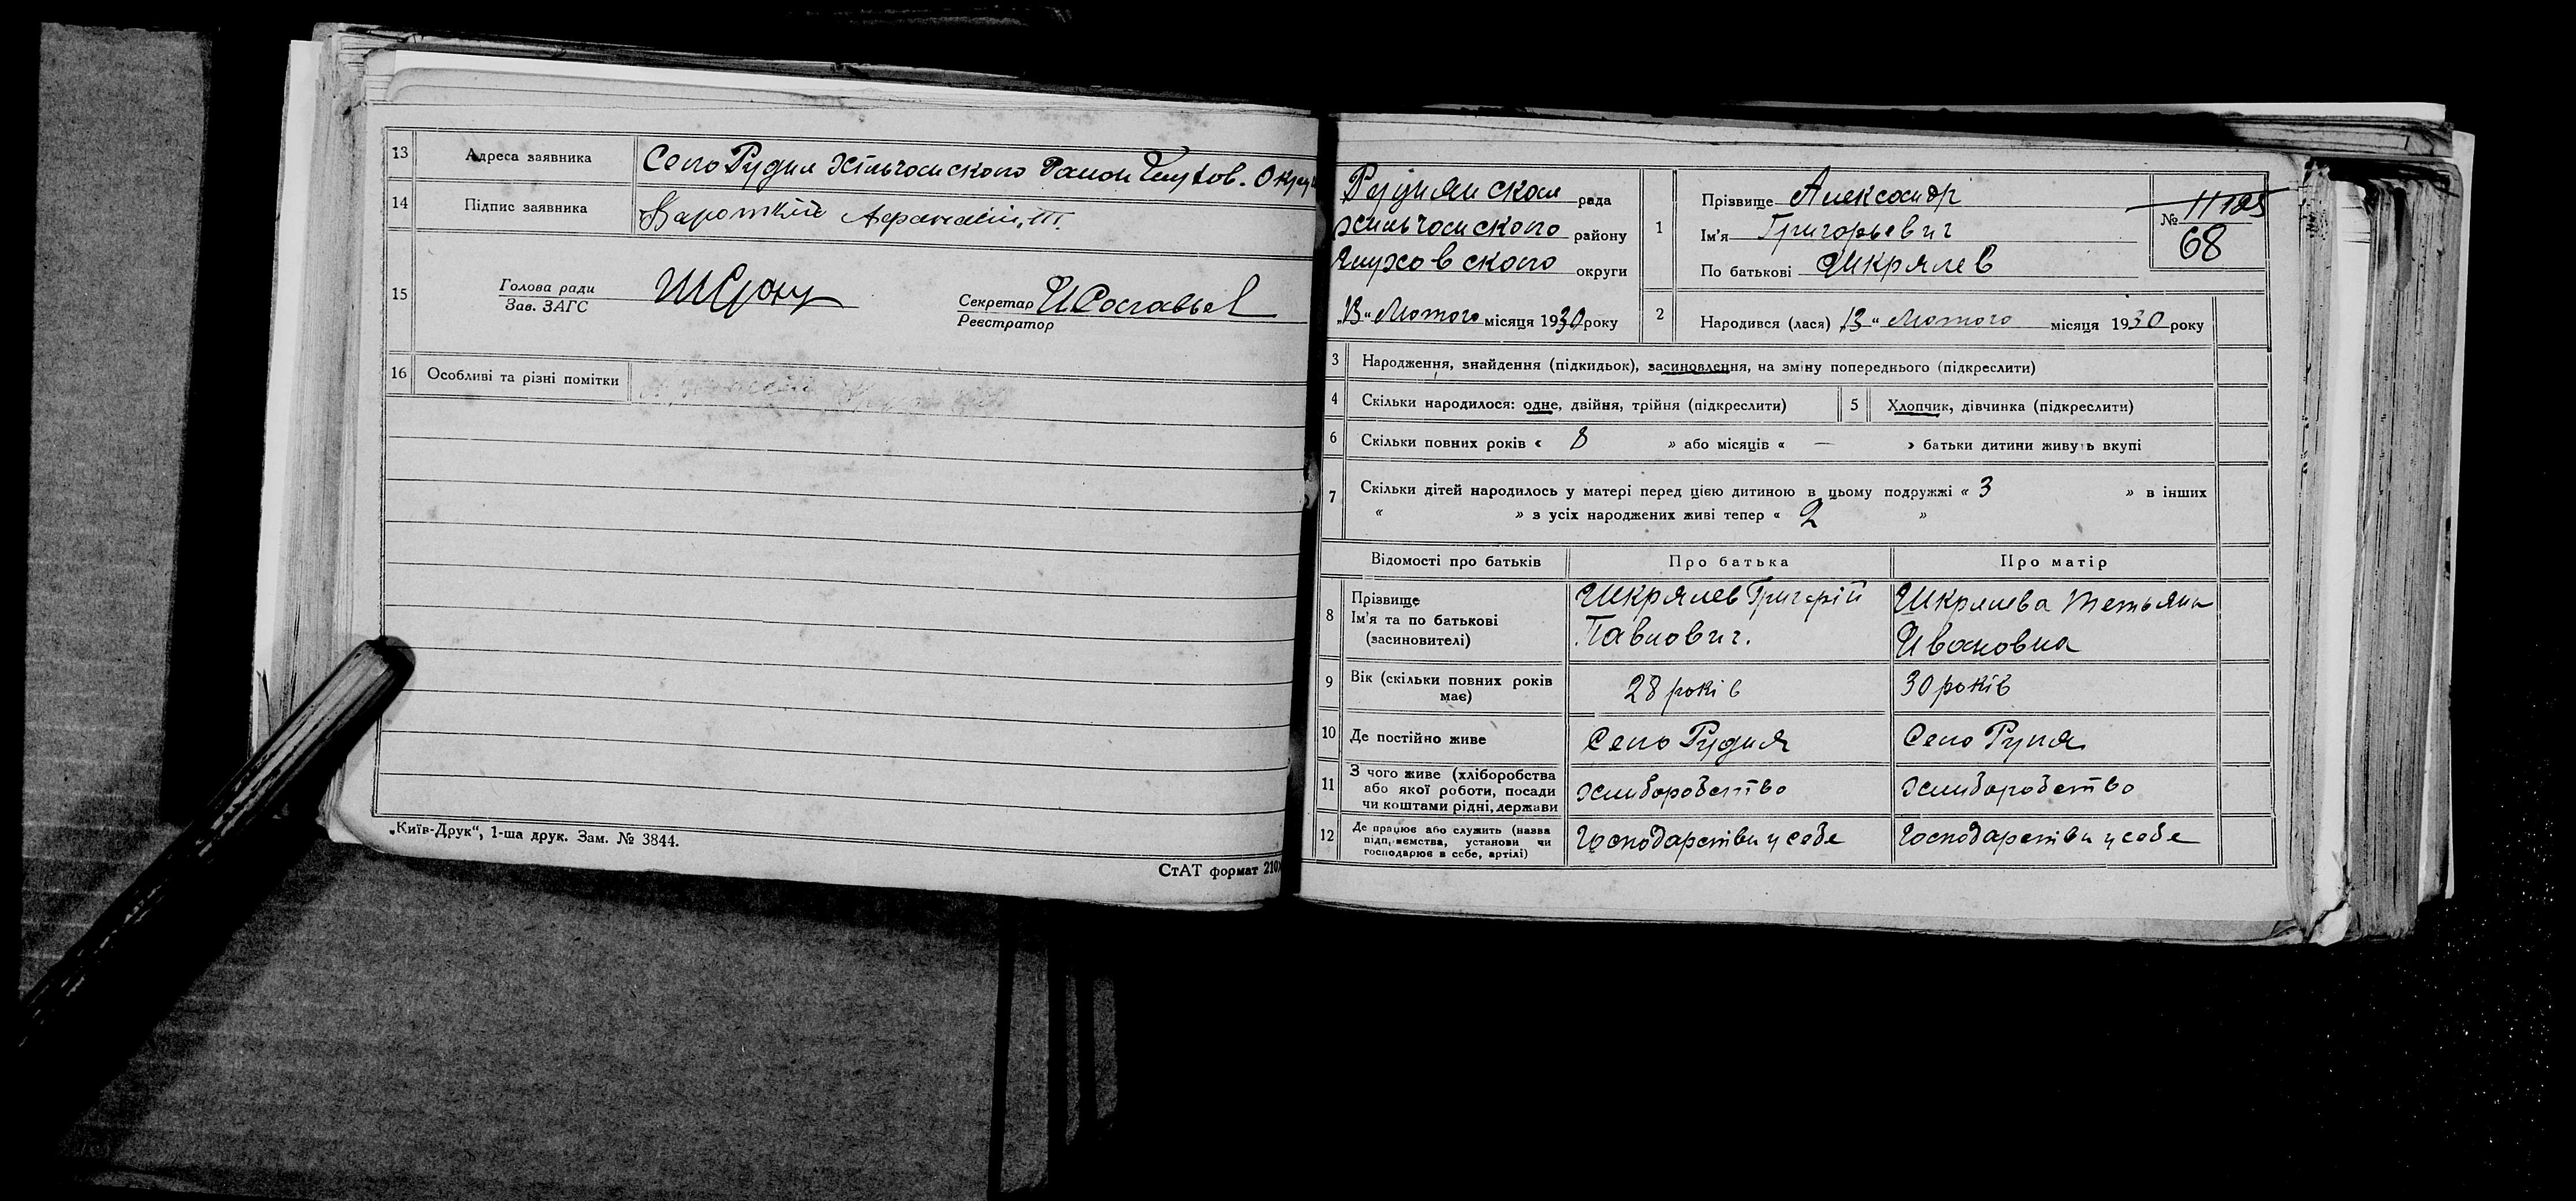 13 Адреса заявника Село Рудня Хільчанского Район Глухов. Округ
14 Підпис заявника
15 Голова ради
Зав. ЗАГС
Секретар
Реєстратор
16 Особливі та різні помітки
„Київ-Друк“, 1-ша друк. Зам. № 3844.
СтАТ формат 210
Руднянскоя рада
Хильчанского району
Глуховского округи
„13“ Лютого місяця 1930 року
1 Прізвище Александр
Ім'я Григорьевич
По батькові Шкрялев
№ 11185
68
2 Народився (лася) „13“ Лютого місяця 1930 року
3 Народження, знайдення (підкидьок), засиновлення, на зміну попереднього (підкреслити)
4 Скільки народилося: одне, двійня, трійня (підкреслити) 5 Хлопчик, дівчинка (підкреслити)
6 Скільки повних років « 8 » або місяців « — » батьки дитини живуть вкупі
7 Скільки дітей народилось у матері перед цією дитиною в цьому подружжі « 3 » в інших
« » з усіх народжених живі тепер « 2 »
Відомості про батьків Про батька Про матір
8 Прізвище
Ім'я та по батькові
(засиновителі)
Шкрялев Григорій
Павлович.
Шкрялева Тетьяна
Ивановна
9 Вік (скільки повних років
має)
28 років 30 років
10 Де постійно живе Село Рудня Село Руня
11 З чого живе (хліборобства
або якої роботи, посади
чи коштами рідні, держави
хлиборобство хлиборобство
12 Де працює або служить (назва
підприємства, установи чи
господарює в себе, артілі)
Господарстви у себе Господарстви у себе